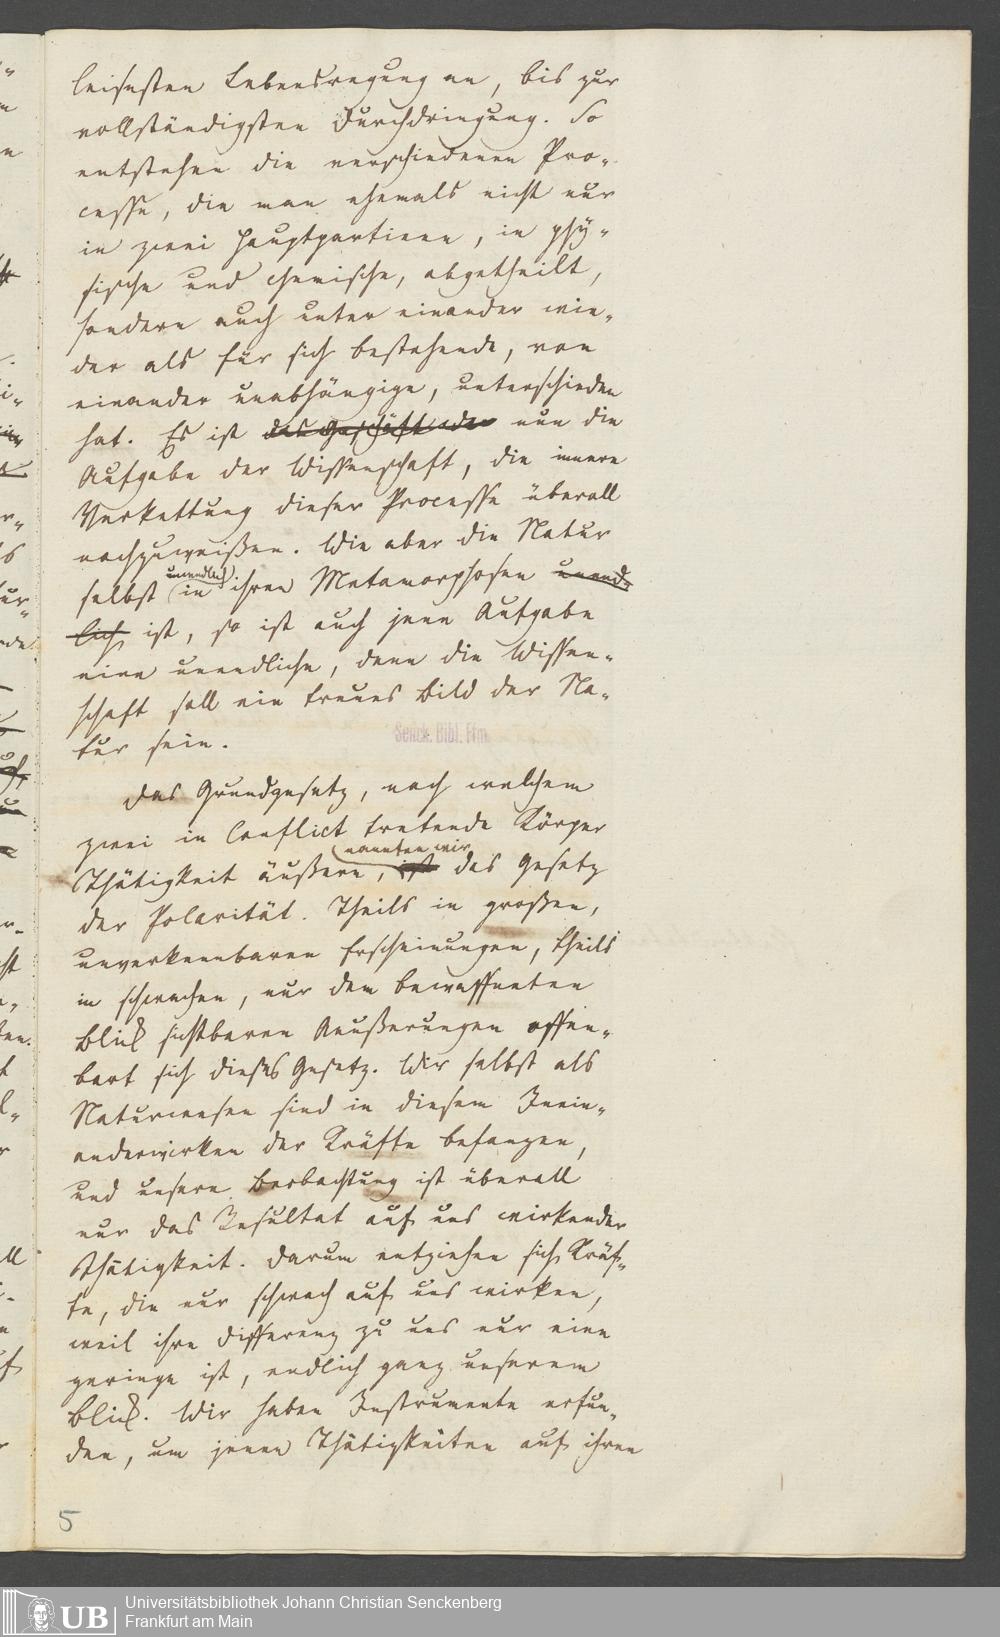 leisesten Lebensregung an, bis zur
vollständigsten Durchdringung. So
entstehen die verschiedenen Pro-
cesse, die man ehemals nicht nur
in zwei Hauptpartieen, in phÿ-
sische und chemische, abgetheilt,
sondern auch unter einander wie-
der als für sich bestehende, von
einander unabhängige, unterschieden
hat. Es ist das Geschäft oder nun die
Aufgabe der Wissenschaft, die innere
Verkettung dieser Processe überall
nachzuweißen. Wie aber die Natur
unendlich
selbst in ihren Metamorphosen unend-
lich ist, so ist auch jene Aufgabe
eine unendliche, denn die Wissen-
schaft soll ein treues Bild der Na-
tur sein.
Senck. Bibl. Ffm.
Das Grundgesetz, nach welchem
zwei in Conflict tretende Körper
nannten wir
Thätigkeit äußern, ist das Gesetz
der Polarität. Theils in großen,
unverkennbaren Erscheinungen, theils
in schwachen, nur dem bewaffneten
Blick sichtbaren Aeußerungen offen-
bart sich dieses Gesetz. Wir selbst als
Naturwesen sind in diesem Inein-
anderwirken der Kräfte befangen,
und unsere Beobachtung ist überall
nur das Resultat auf uns wirkender
Thätigkeit. Darum entziehen sich Kräf-
te, die nur schwach auf uns wirken,
weil ihre Differenz zu uns nur eine
geringe ist, endlich ganz unserem
Blick. Wir haben Instrumente erfun-
den, um jenen Thätigkeiten auf ihren
5
UB
Universitätsbibliothek Johann Christian Senckenberg
Frankfurt am Main